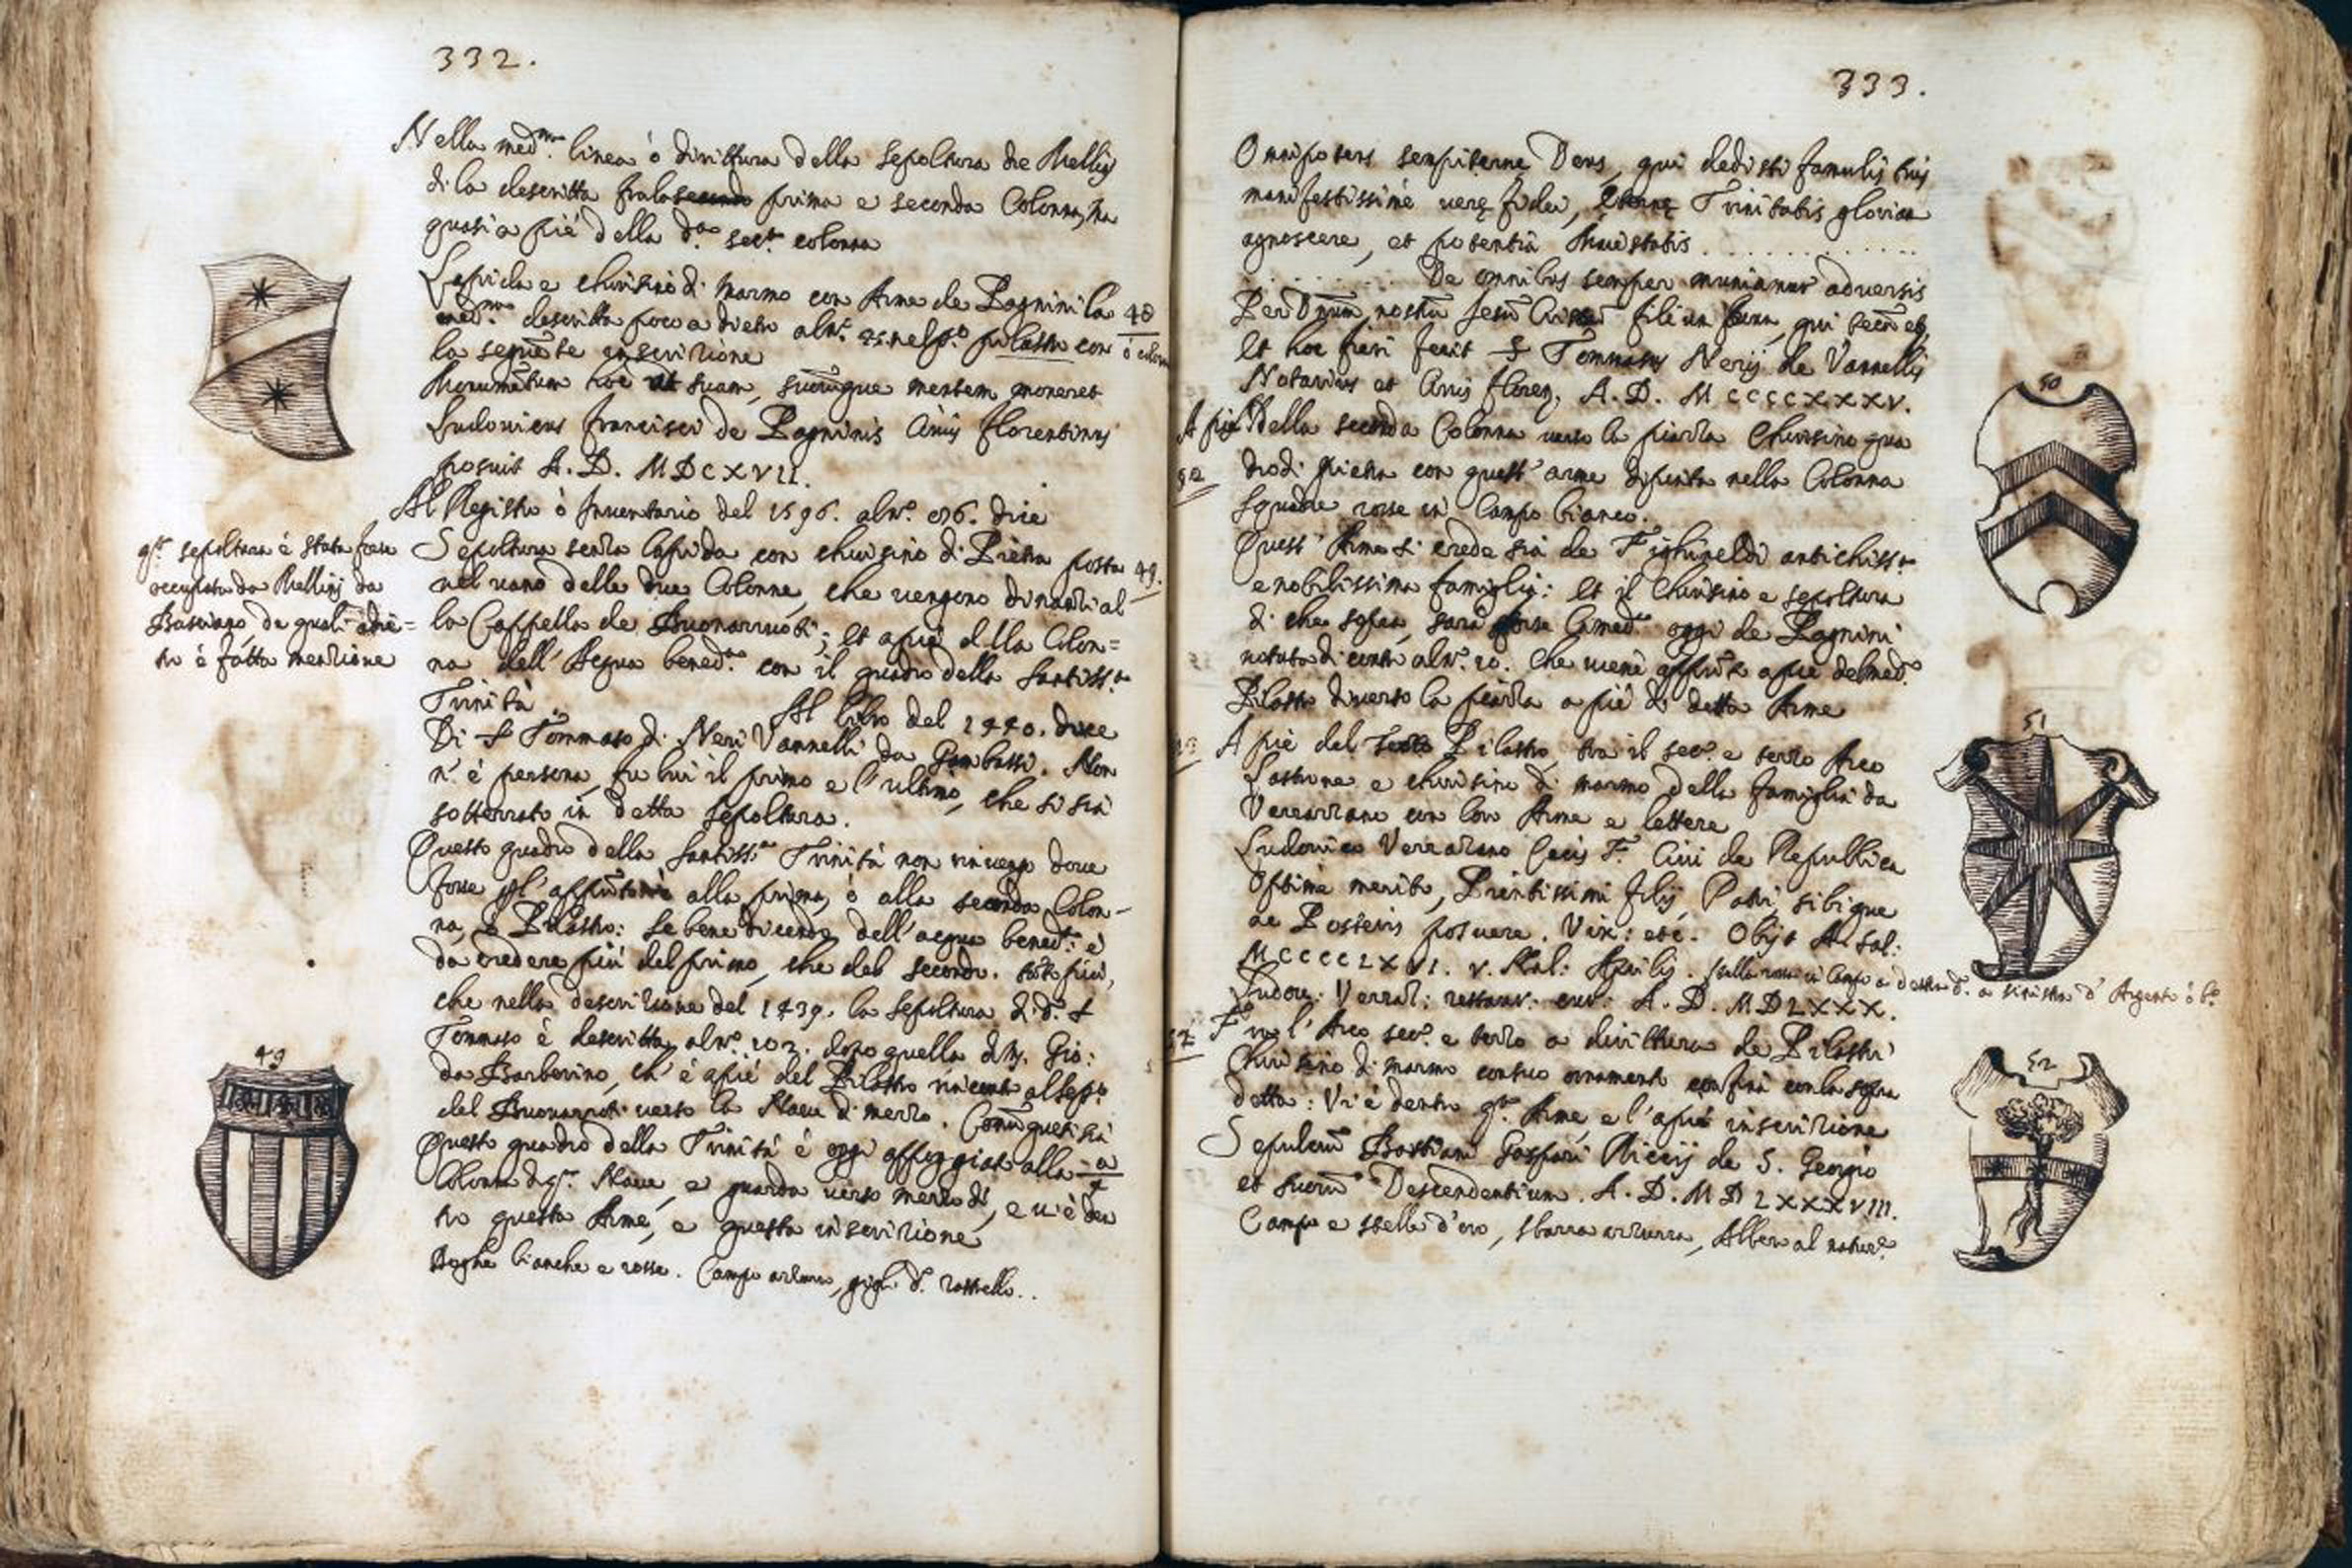 332.
Nella med.ma linea ò dirittura della sepoltura de Mellini
di la descritta fra la secondo prima e seconda Colonna, ma
quasi a piè della d.a sec.da colonna
Lapida e chiusino di marmo con Arme de Pagnini la 48
med.ma descritta poco a dietro al n.o 25. nel p.o pilastro con ò colonna
la seguẽte inscrizione
Monumẽtum hoc ut suam, suorũque mentem moneret
Ludovicus Francisci de Pagninis Civis florentinus
posuit A. D. MDCXVII.
Al Registro ò Inventario del 1596. al n.o 86. dice
Sepoltura senza lapida con chiusino di Pietra posta 49.
nel vano delle due Colonne, che vengono dinanzi al
la Cappella de Buonarruoti; et a piè della Colon=
na dell'Acqua bened.a con il quadro della Santiss.a
Trinità Al libro del 1440. dice
Di S. Tommaso di Neri Vannelli da Gambassi. Non
n'è persona, fu lui il primo e l'ultimo, che si sia
sotterrato in detta sepoltura.
q.ta sepoltura è stata forse
occupata da Mellini da
Bacciano de quali adie=
tro è fatta menzione
Questo quadro della Santiss.a Trinità non rinvengo dove
fosse alla prima, ò alla seconda Colon-
na, ò Pilastro: Se bene dicendo dell'acqua bened.a è
da credere più del primo, che del secondo. tãto più,
che nella descrizione del 1439. la sepoltura di d.o S.
Tommaso è descritta al n.o 102. dopo quella di M. Gio:
da Barberino, ch'è a piè del Pilastro rincontro al sep.o
del Buonarroti verso la Nave di mezzo. Comũque si sia
Questo quadro della Trinità è oggi appoggiato alla
Colonna di q.ta Nave, e guarda verso mezzo dì, e v'è den
tro questa Arme, e questa inscrizione
49
Doghe bianche e rosse. Campo azzurro, gigli d. rastrello..
333.
Omnipotens sempiterne Deus, qui dedisti famulis tuis
manifestissimè verę fidei, Eternę Trinitatis gloriam
agnoscere, et potentia Maiestatis . . . . . . . . . .
. . . . . . . . De omnibus semper muniamur adversis
Per Dñum nostrũ Jesũ filium tuum, qui tecũ etc.
Et hoc fieri fecit S. Tommasus Nerij de Vannellis
Notarius et Civis floren. A. D. MCCCCXXXV.
A piè della seconda Colonna verso la piazza Chiusino qua
dro di pietra con quest'arme dipinta nella Colonna
Squadre rosse in Campo bianco.
50
Quest'Arme si crede sia de Fighineldi antichiss.a
e nobilissima famiglia: Et il Chiusino e sepoltura
di che sopra, sarà forse la med.a oggi de Pagnini
notata di contro al n.o 20. Che viene appũto a piè del med.o
Pilastro diverso la piazza a piè di detta Arme
A piè del Terzo Pilastro, tra il sec.o e terzo Arco
Lastrone e chiusino di marmo della famiglia da
Verrazzano con loro Arme e lettere
51
Ludovico Verrazano Cecis F. Civi de Republica
Optime merito, Pientissimi filij, Patri, sibique
ac Posteris posuere. Vix: etc. Obijt A. Sal:
MCCCCLXVI. V. Kal: Aprilis. stella rossa in Campo a destra d. a sinistra d'Argento ò b.o
Ludov: Verraz: restaur: cur: A. D. MDLXXX.
Fra l'Arco sec.o e terzo a dirittura de Pilastri
Chiusino di marmo con suo ornamento confina con la sopra
detta: Vi è dentro q.ta Arme, e l'a piè inscrizione
52
Sepulcrũ Bastiani Gaspari Riccij de S. Georgio
et suorũ Descendentium. A. D. MDLXXXVIII.
Campo e stelle d'oro, sbarra azzurra, Albero al natur.e